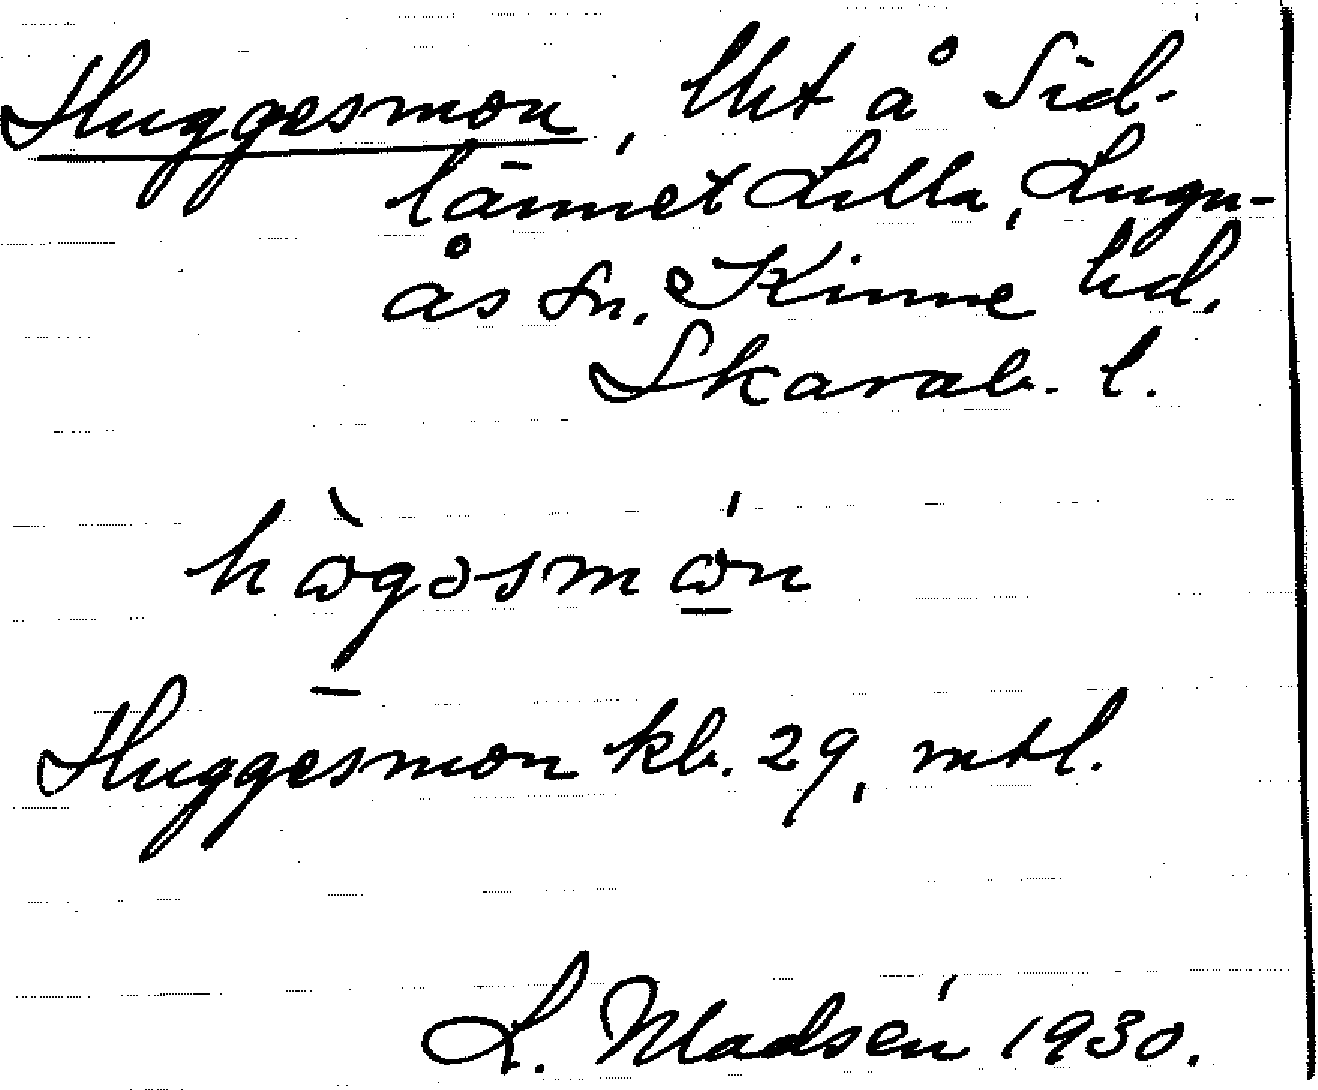 Huggesmon, lht å Sid-
lännet Lilla, Lugn-
ås sn. Kinne hd.
Skarab. l.
hògəsmón
Huggesmon kb. 29, mtl.
L. Madsén 1930.